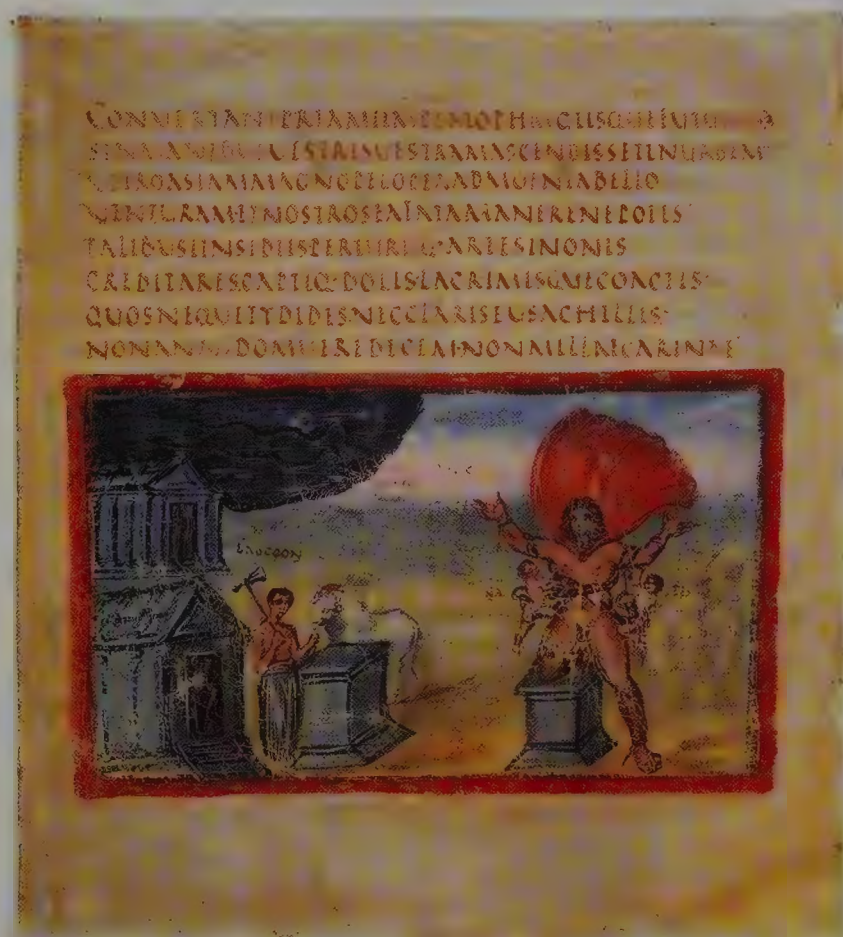 CONVERTANTPRIAMIIMPERIOPH
VESTRISVESTRAMASCENDISSETINURBEM
ASIAMMAGNOPELOPEAADMOENIABELLO
VENTURAMETNOSTROSEAFATAMANERENEPOTES
TALIBUSINSIDIISPERIURIQ·ARTESINONIS
CREDITARESCAPTIQ·DOLISLACRIMISQUECOACTIS
QUOSNEQUETYDIDESNECLARISEUSACHILLES
NONANNIDOMUEREDECEMNONMILLECARINAE
LAUCOON